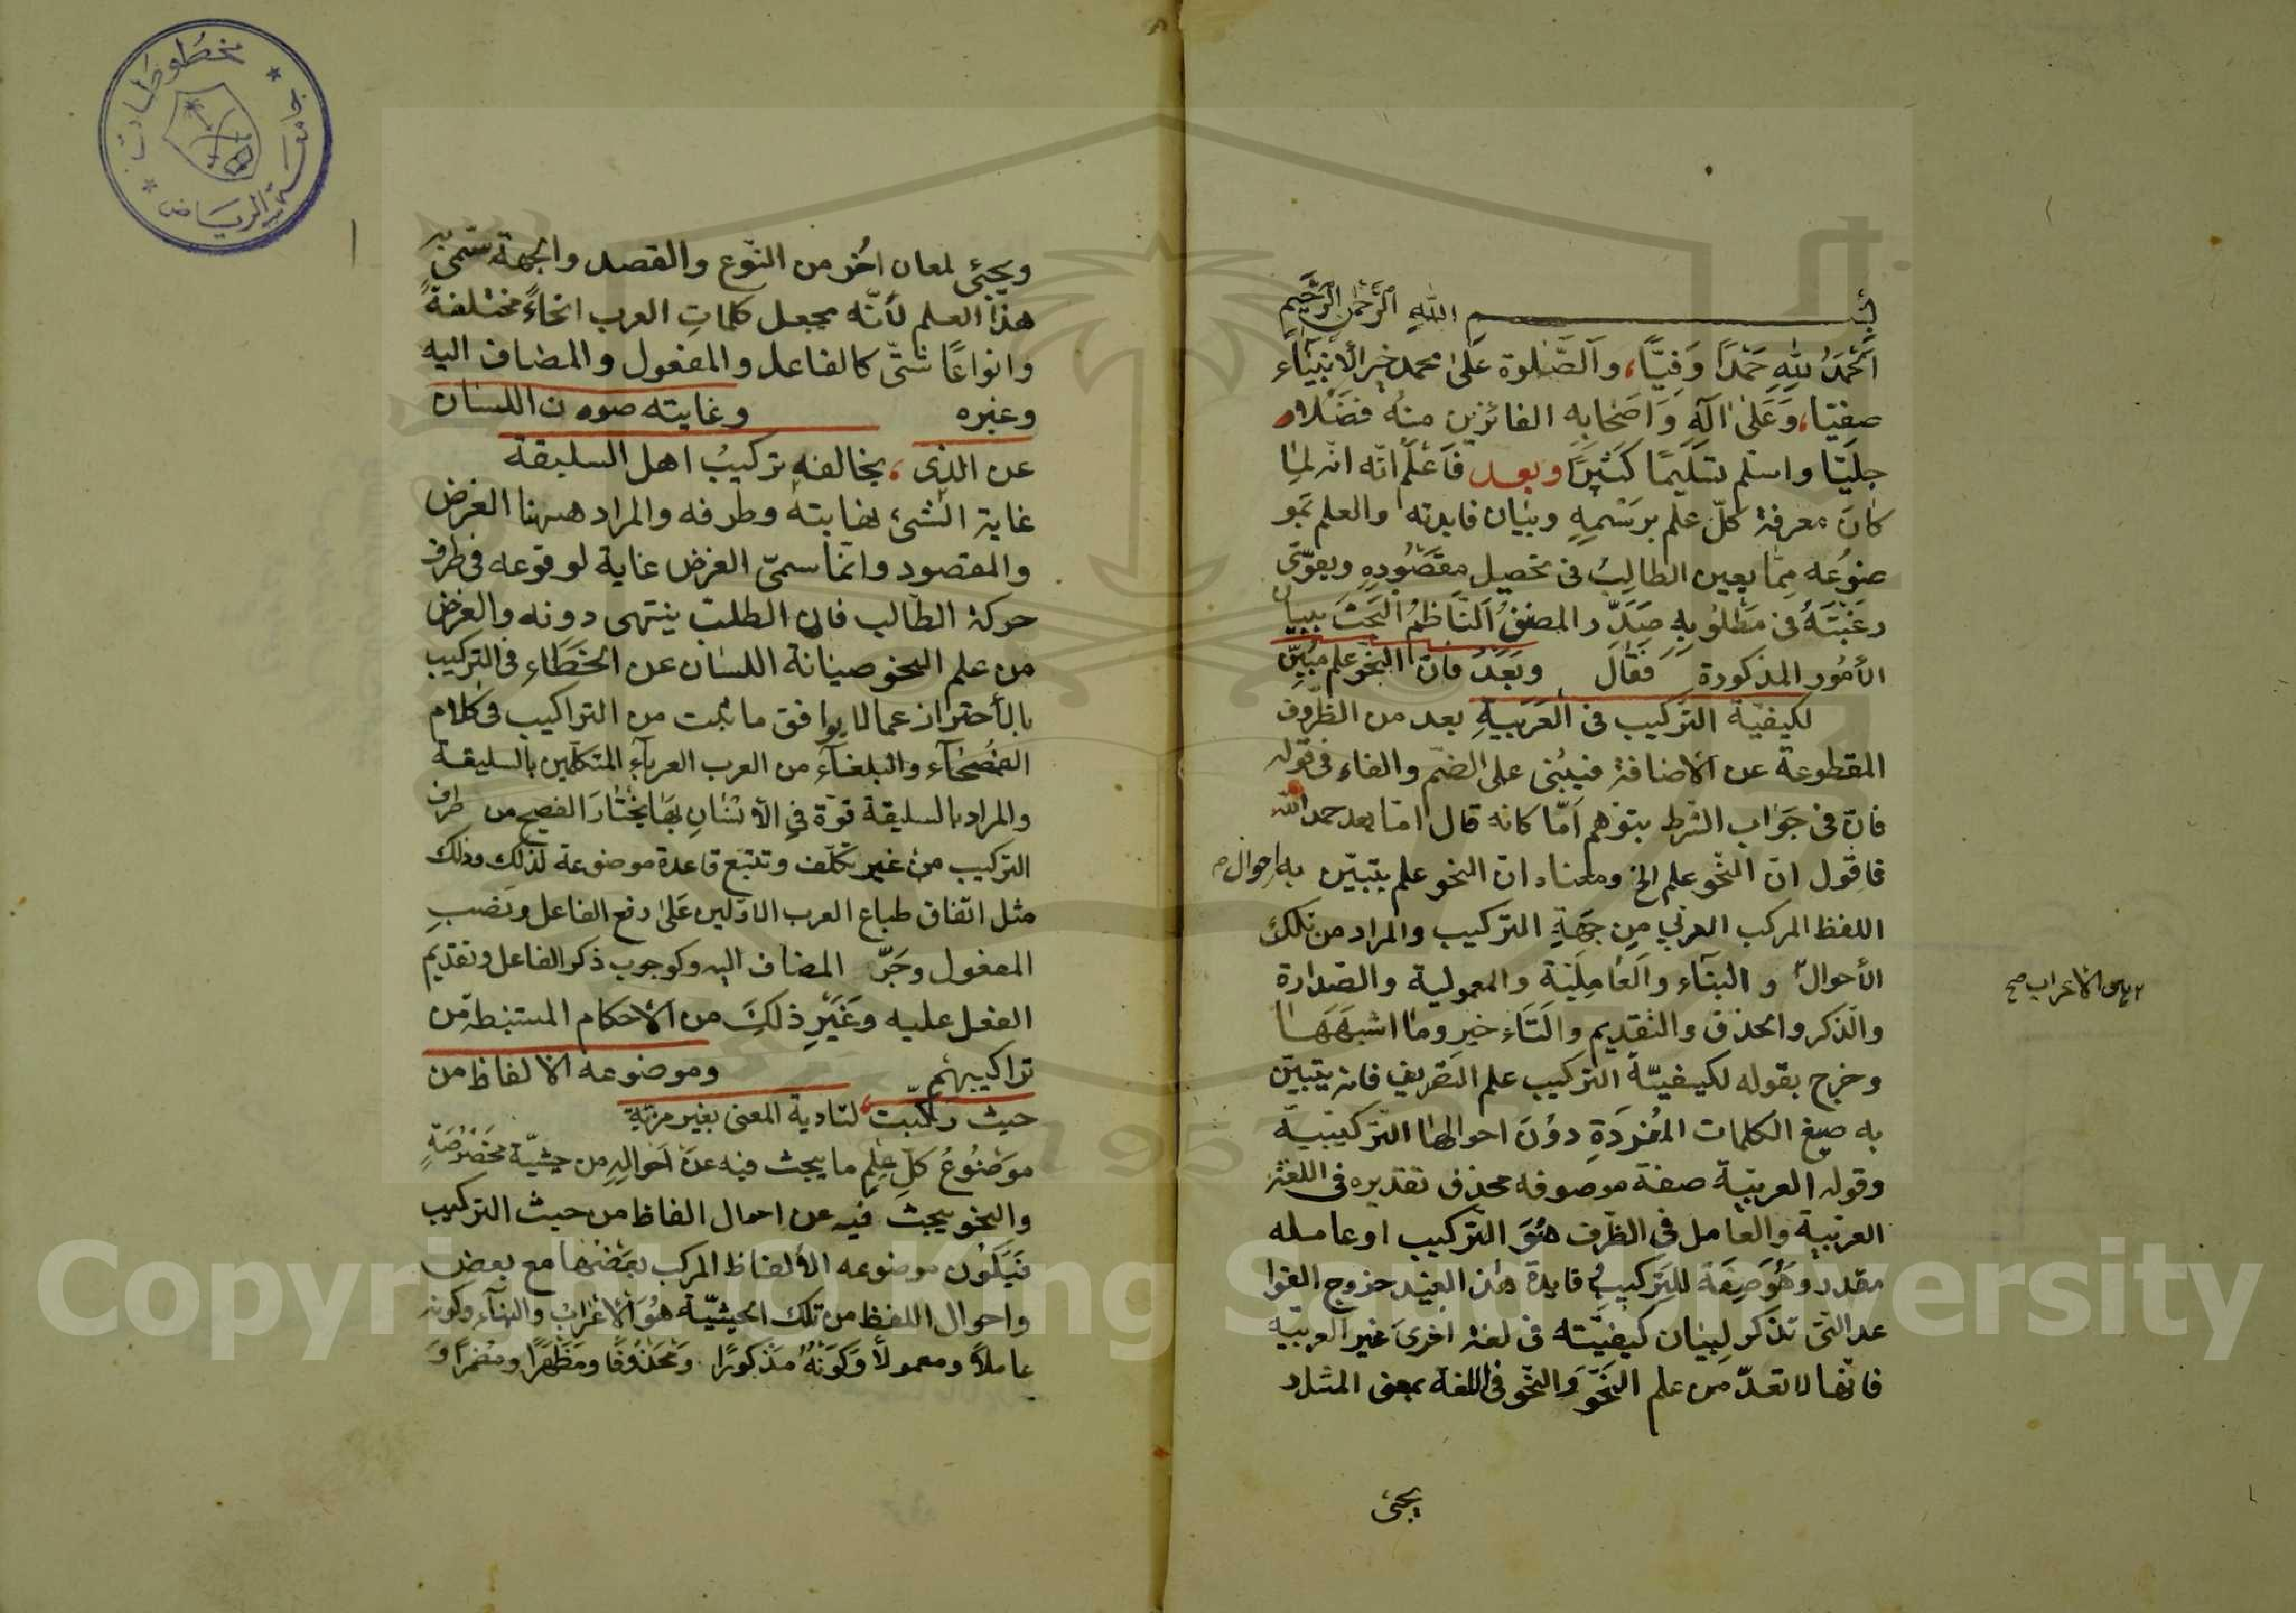 بسم الله الرحمن الرحيم
الحمد لله حمدًا وفيّا، والصلوة على محمد خير الأنبياء
صفيّا، وعلى آله واصحابه الفائزين منه فضلا
جليّا واسلم تسليمًا كثيرًا وبعد فاعلم انّه لما
كان معرفة كلّ علم برسمه وبيان فايدته والعلم بمو
ضوعه ممّا يعين الطالب فى تحصيل مقصوده ويقوّى
رغبته فى مطلوبه صدّر المصنف الناظم البحث ببيان
الأمور المذكورة فقال وبعد فانّ النحو علم مبيّن
لكيفية التركيب فى العربية بعد من الظروف
المقطوعة عن الاضافة فيبنى على الضم والفاء فى قوله
فانّ فى جواب الشرط بتوهم امّا كانه قال امّا بعد حمد الله
فاقول انّ النّحو علم الخ ومعناه ان النحو علم يتبيّن به احوال
اللفظ المركب العربي من جهة التركيب والمراد من تلك
الأحوال والبناء والعاملية والمعمولية والصدارة
والذكر والحذف والتقديم والتاخير وما اشبهها
وخرج بقوله لكيفيّة التركيب علم التصريف فانه يتبيّن
به صيغ الكلمات المفردة دون احوالها التركيبيّة
وقوله العربيّة صفة موصوفه محذف تقديره فى اللغة
العربية والعامل فى الظرف هو التركيب او عامله
مقدر وهو صفة للتركيب فايدة هذا القيد خروج القوا
عد التى تذكر لبيان كيفيّته فى لغة اخرى غير العربيّة
فانّها لا تعدّ من علم النحو والنّحو فى اللغة بمعنى المثل
يجئ
الاعراب صح
ويجئ لمعان اخر من النّوع والقصد والجهة سمّى به
هذا العلم لأنّه يجعل كلمات العرب انحاءً مختلفةً
وانواعًا شتّى كالفاعل والمفعول والمضاف اليه
وغيره وغايته صون اللسان
عن الذى، يخالفه تركيب اهل السليقة
غاية الشئ نهايته وطرفه والمراد ههنا الغرض
والمقصود وانّما سمّى الغرض غاية لوقوعه فى طرف
حركة الطّالب فان الطلب ينتهى دونه والغرض
من علم النحو صيانة اللسان عن الخطاء فى التركيب
بالأحتراز عما لا يوافق ما ثبت من التراكيب فى كلام
الفصحآء والبلغآء من العرب العربآء المتكلمين بالسليقة
والمراد بالسليقة قوّة فى الأنسان بها يختار الفصيح من طرف
التركيب من غير تكلّف وتتبع قاعدة موضوعة لذلك وذلك
مثل اتفاق طباع العرب الاولين على رفع الفاعل ونصب
المفعول وجرّ المضاف اليه وكوجوب ذكر الفاعل وتقديم
الفعل عليه وغير ذلك من الاحكام المستنبطة من
تراكيبهم وموضوعه الالفاظ من
حيث ركّبت، لتادية المعنى بغير مزية
موضوع كلّ علم ما يبحث فيه عن احواله من حيثيّة مخصوصة
والنحو يبحث فيه عن احوال الفاظ من حيث التركيب
فيكون موضوعه الألفاظ المركب بعضها مع بعض
واحوال اللفظ من تلك الحيثيّة هو الاعراب والبنآء وكونه
عاملاً ومعمولاً وكونه مذكورًا ومحذوفًا ومظهرًا ومضمرًا و
جامعة الرياض
مخطوطات
1957
Copyright © King Saud University